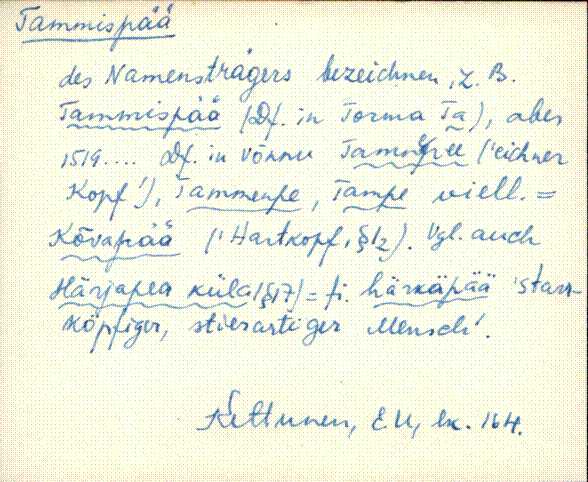 Tammispää
des Namensträgers bezeichnen, z. B.
Tammispää (Df. in Torma Ta), aber
1519.... Df. in Võnnu ('eichner
Kopf'), Tammenpe, Tampe viell. =
Kõvapää ('Hartkopf, § 12). Vgl. auch
Härjapea küla (§ 17) = fi. härkäpää 'starr-
köpfiger, stierartiger Mensch'.
Kettunen, E U, lk. 164.